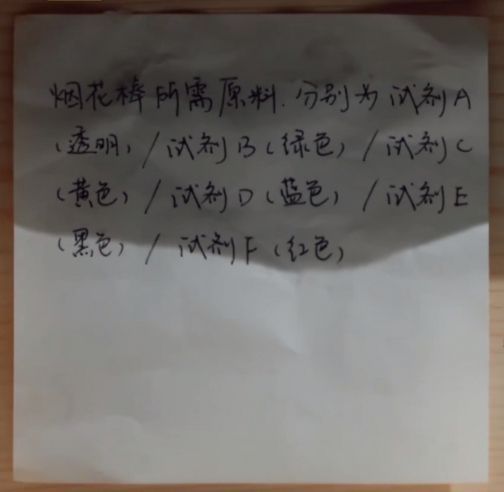 烟花棒所需原料.分别为试剂A
(透明)/试剂B(绿色)/试剂C
(黄色)/试剂D(蓝色)/试剂E
(黑色)/试剂F(红色)